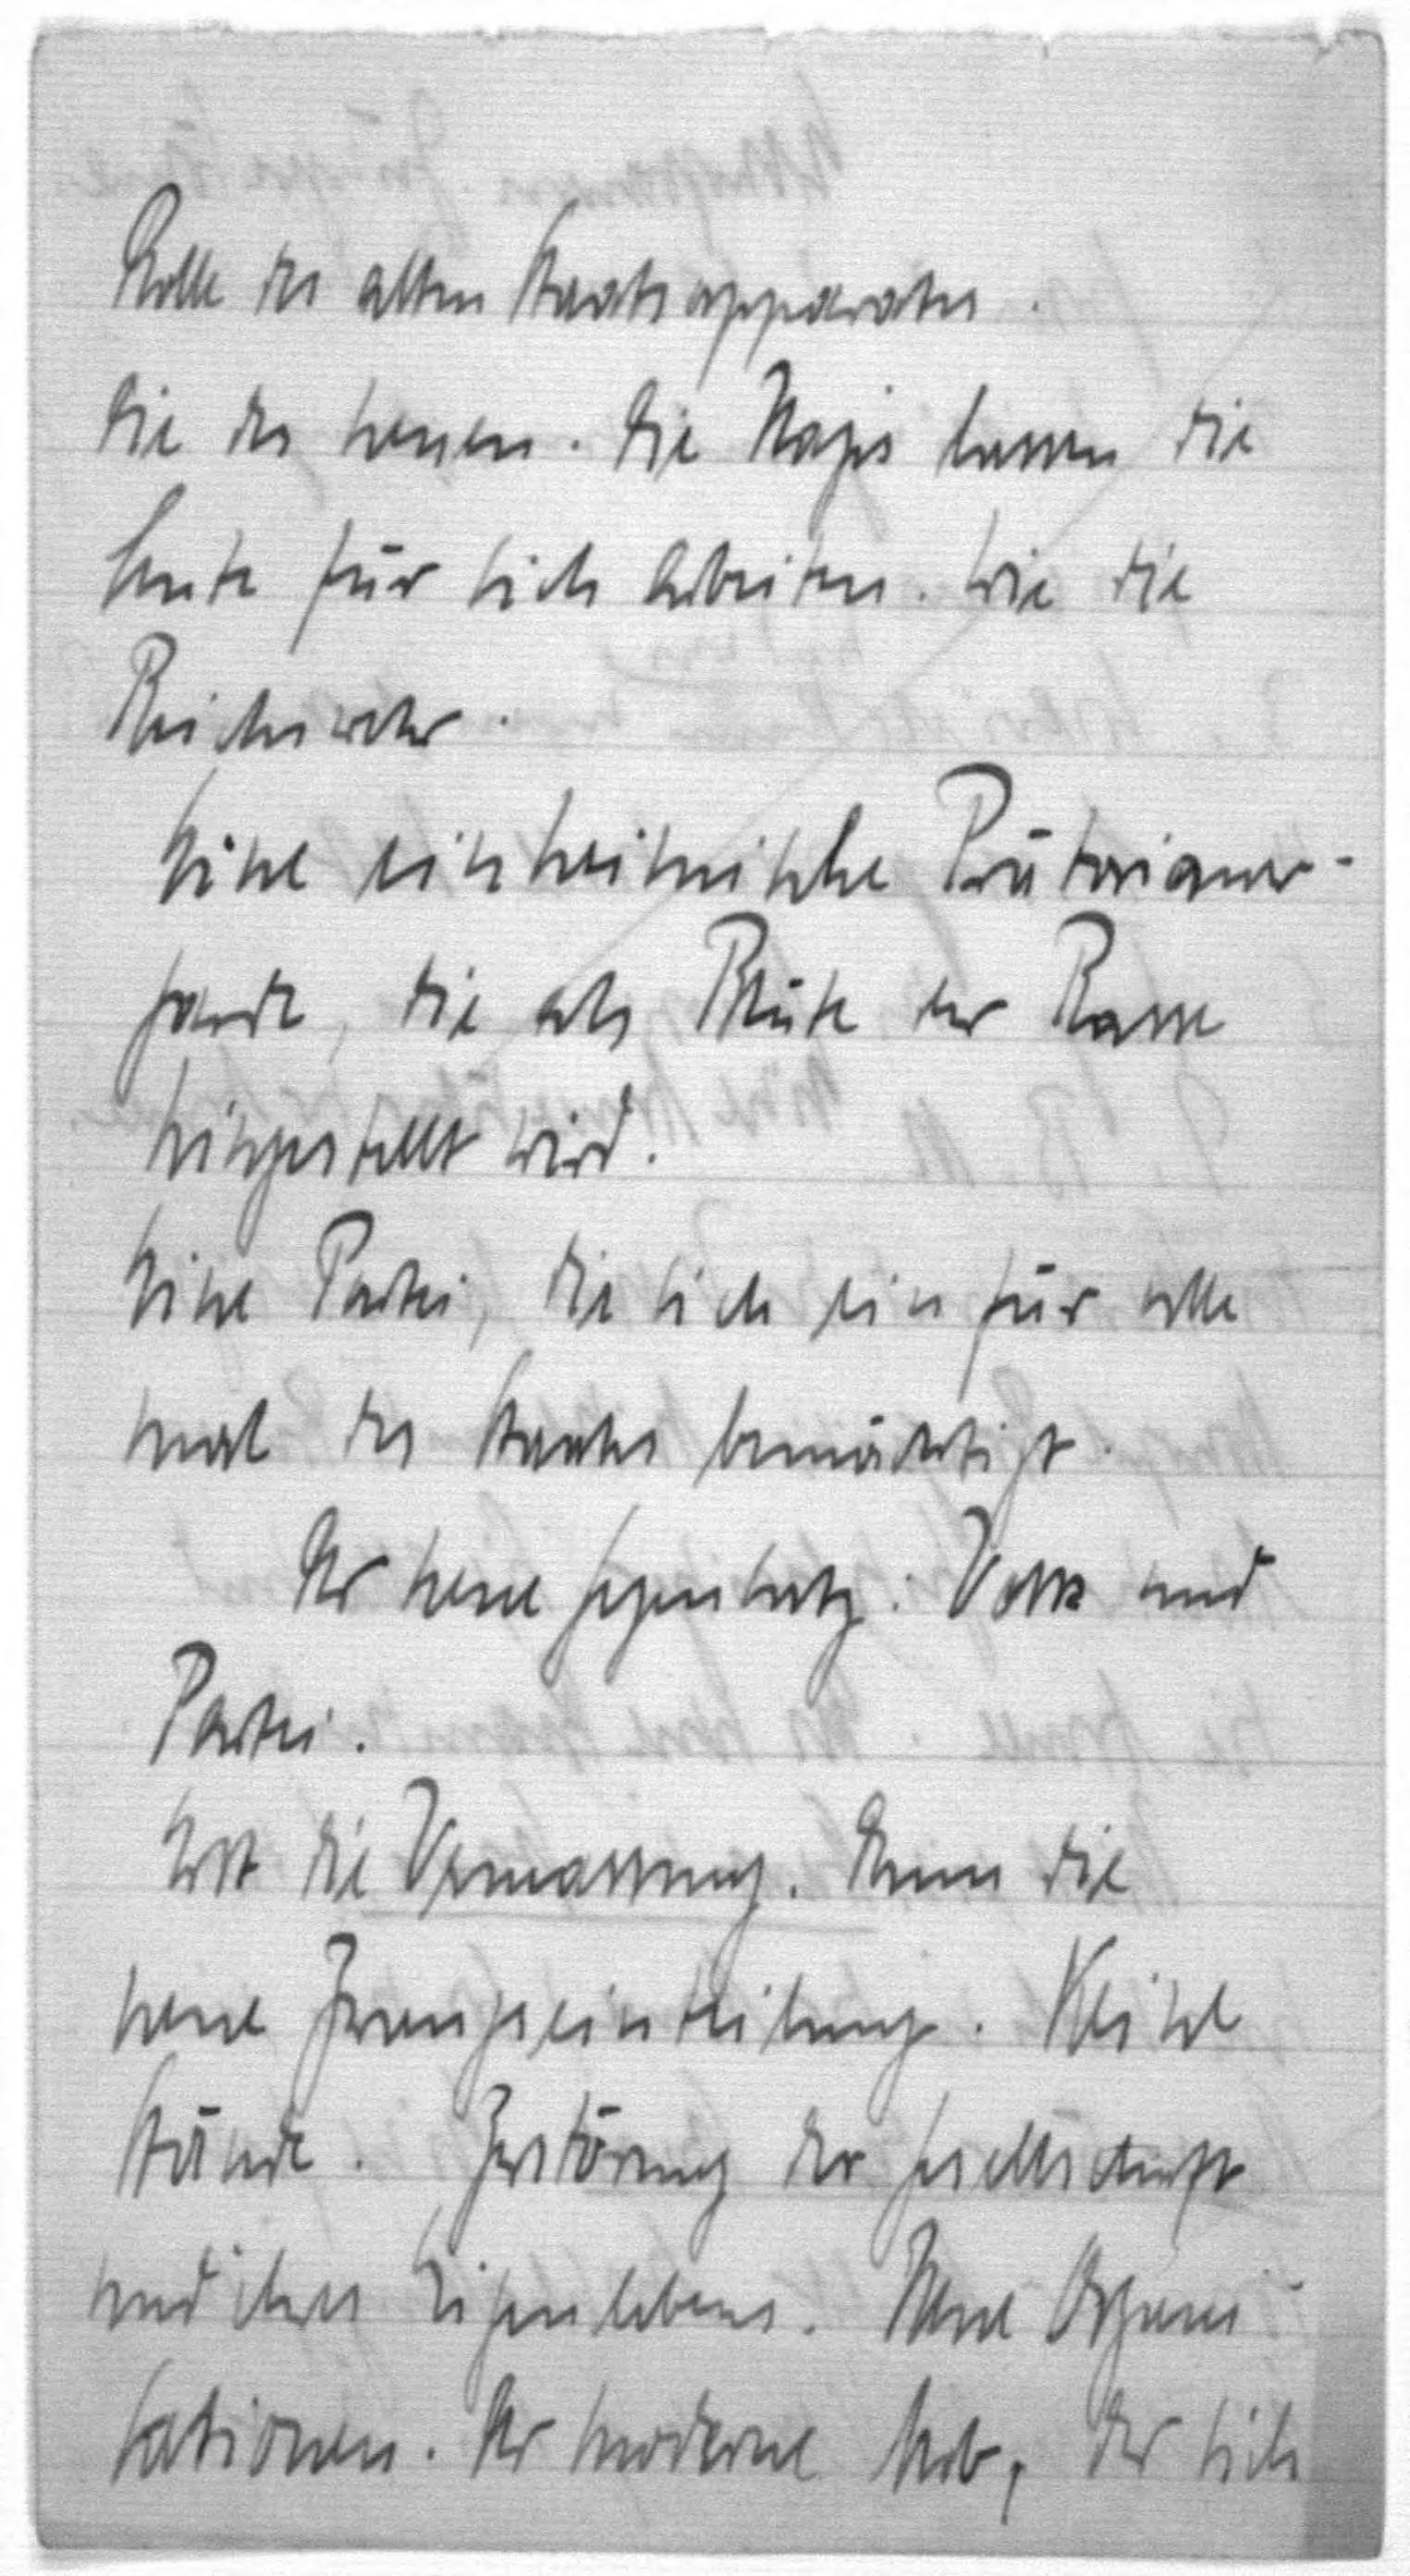 Rolle des alten Staatsapparates.
Die des neuen. Die Nazis lassen die
Leute für sich arbeiten. Wie die
Reichswehr.
Eine einheimische Prätorianer-
garde, die als Blüte der Rasse
hingestellt wird.
Eine Partei, die sich ein für alle
mal des Staates bemächtigt.
Der neue Gegensatz: Volk und
Partei.
Erst die Vermassung. Dann die
neue Zwangseinteilung. Kleine
Stände. Zerstörung der Gesellschaft
und ihres Eigenlebens. Neue Organi-
sationen. Der moderne Mob, der sich